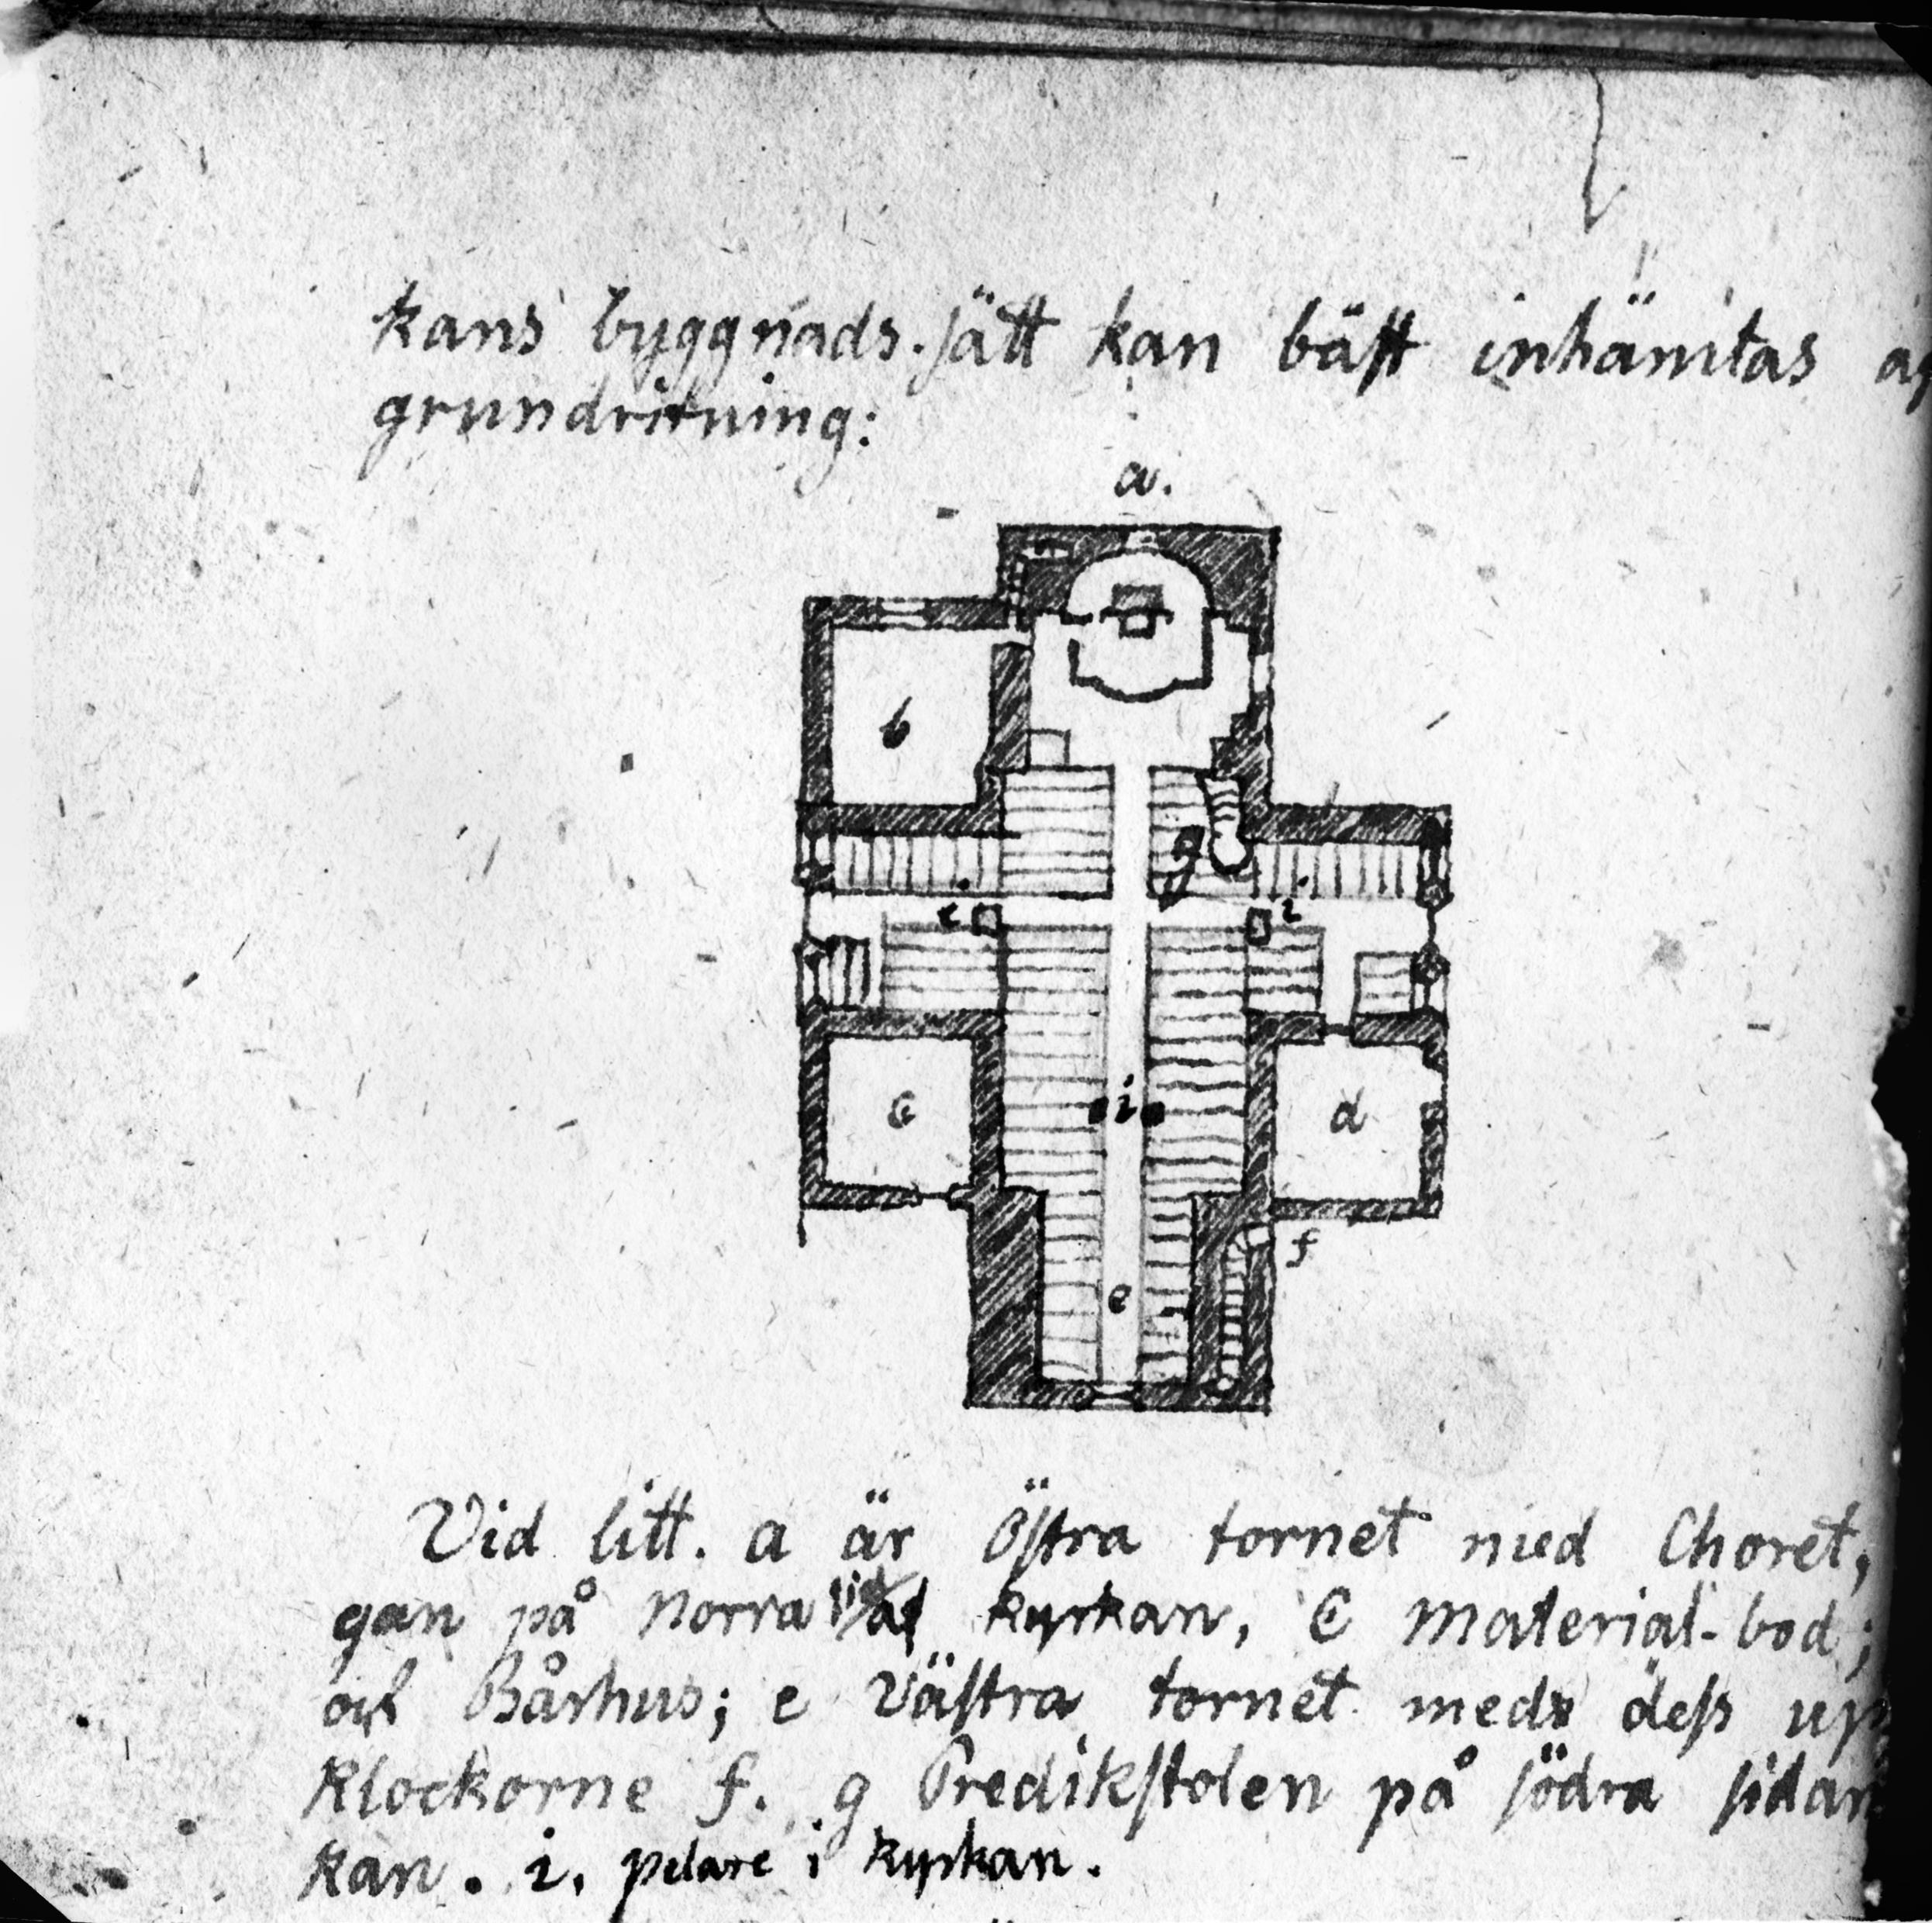 kans byggnads-sätt kan bäst inhämtas af
grundritning:
a.
b
g
i
i
i
c
d
f
e
Vid litt. a är Östra tornet med Choret,
gan på Norra sid af kyrkan, C Material-bod;
och Bårhus; e Västra tornet med dess up
Klockorne f. g Predikstolen på södra sidan
kan. i. pelare i kyrkan.